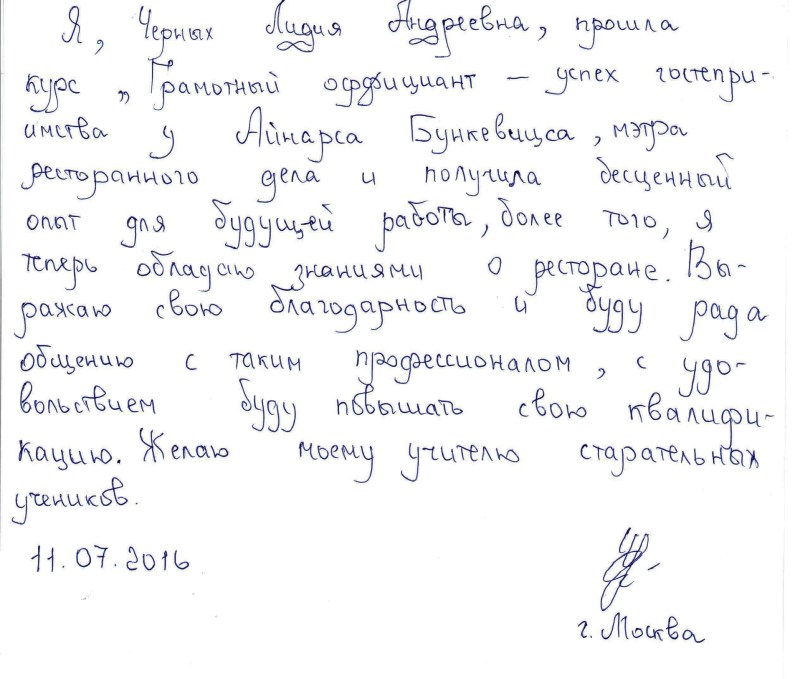 Я, Черных Лидия Андреевна, прошла
курс „Грамотный оффициант – успех гостепри-
имства у Айнарса Бункевицса, мэтра
ресторанного дела и получила бесценный
опыт для будущей работы, более того, я
теперь обладаю знаниями о ресторане. Вы-
ражаю свою благодарность и буду рада
общению с таким профессионалом, с удо-
вольствием буду повышать свою квалифи-
кацию. Желаю моему учителю старательных
учеников.
11.07.2016
г. Москва